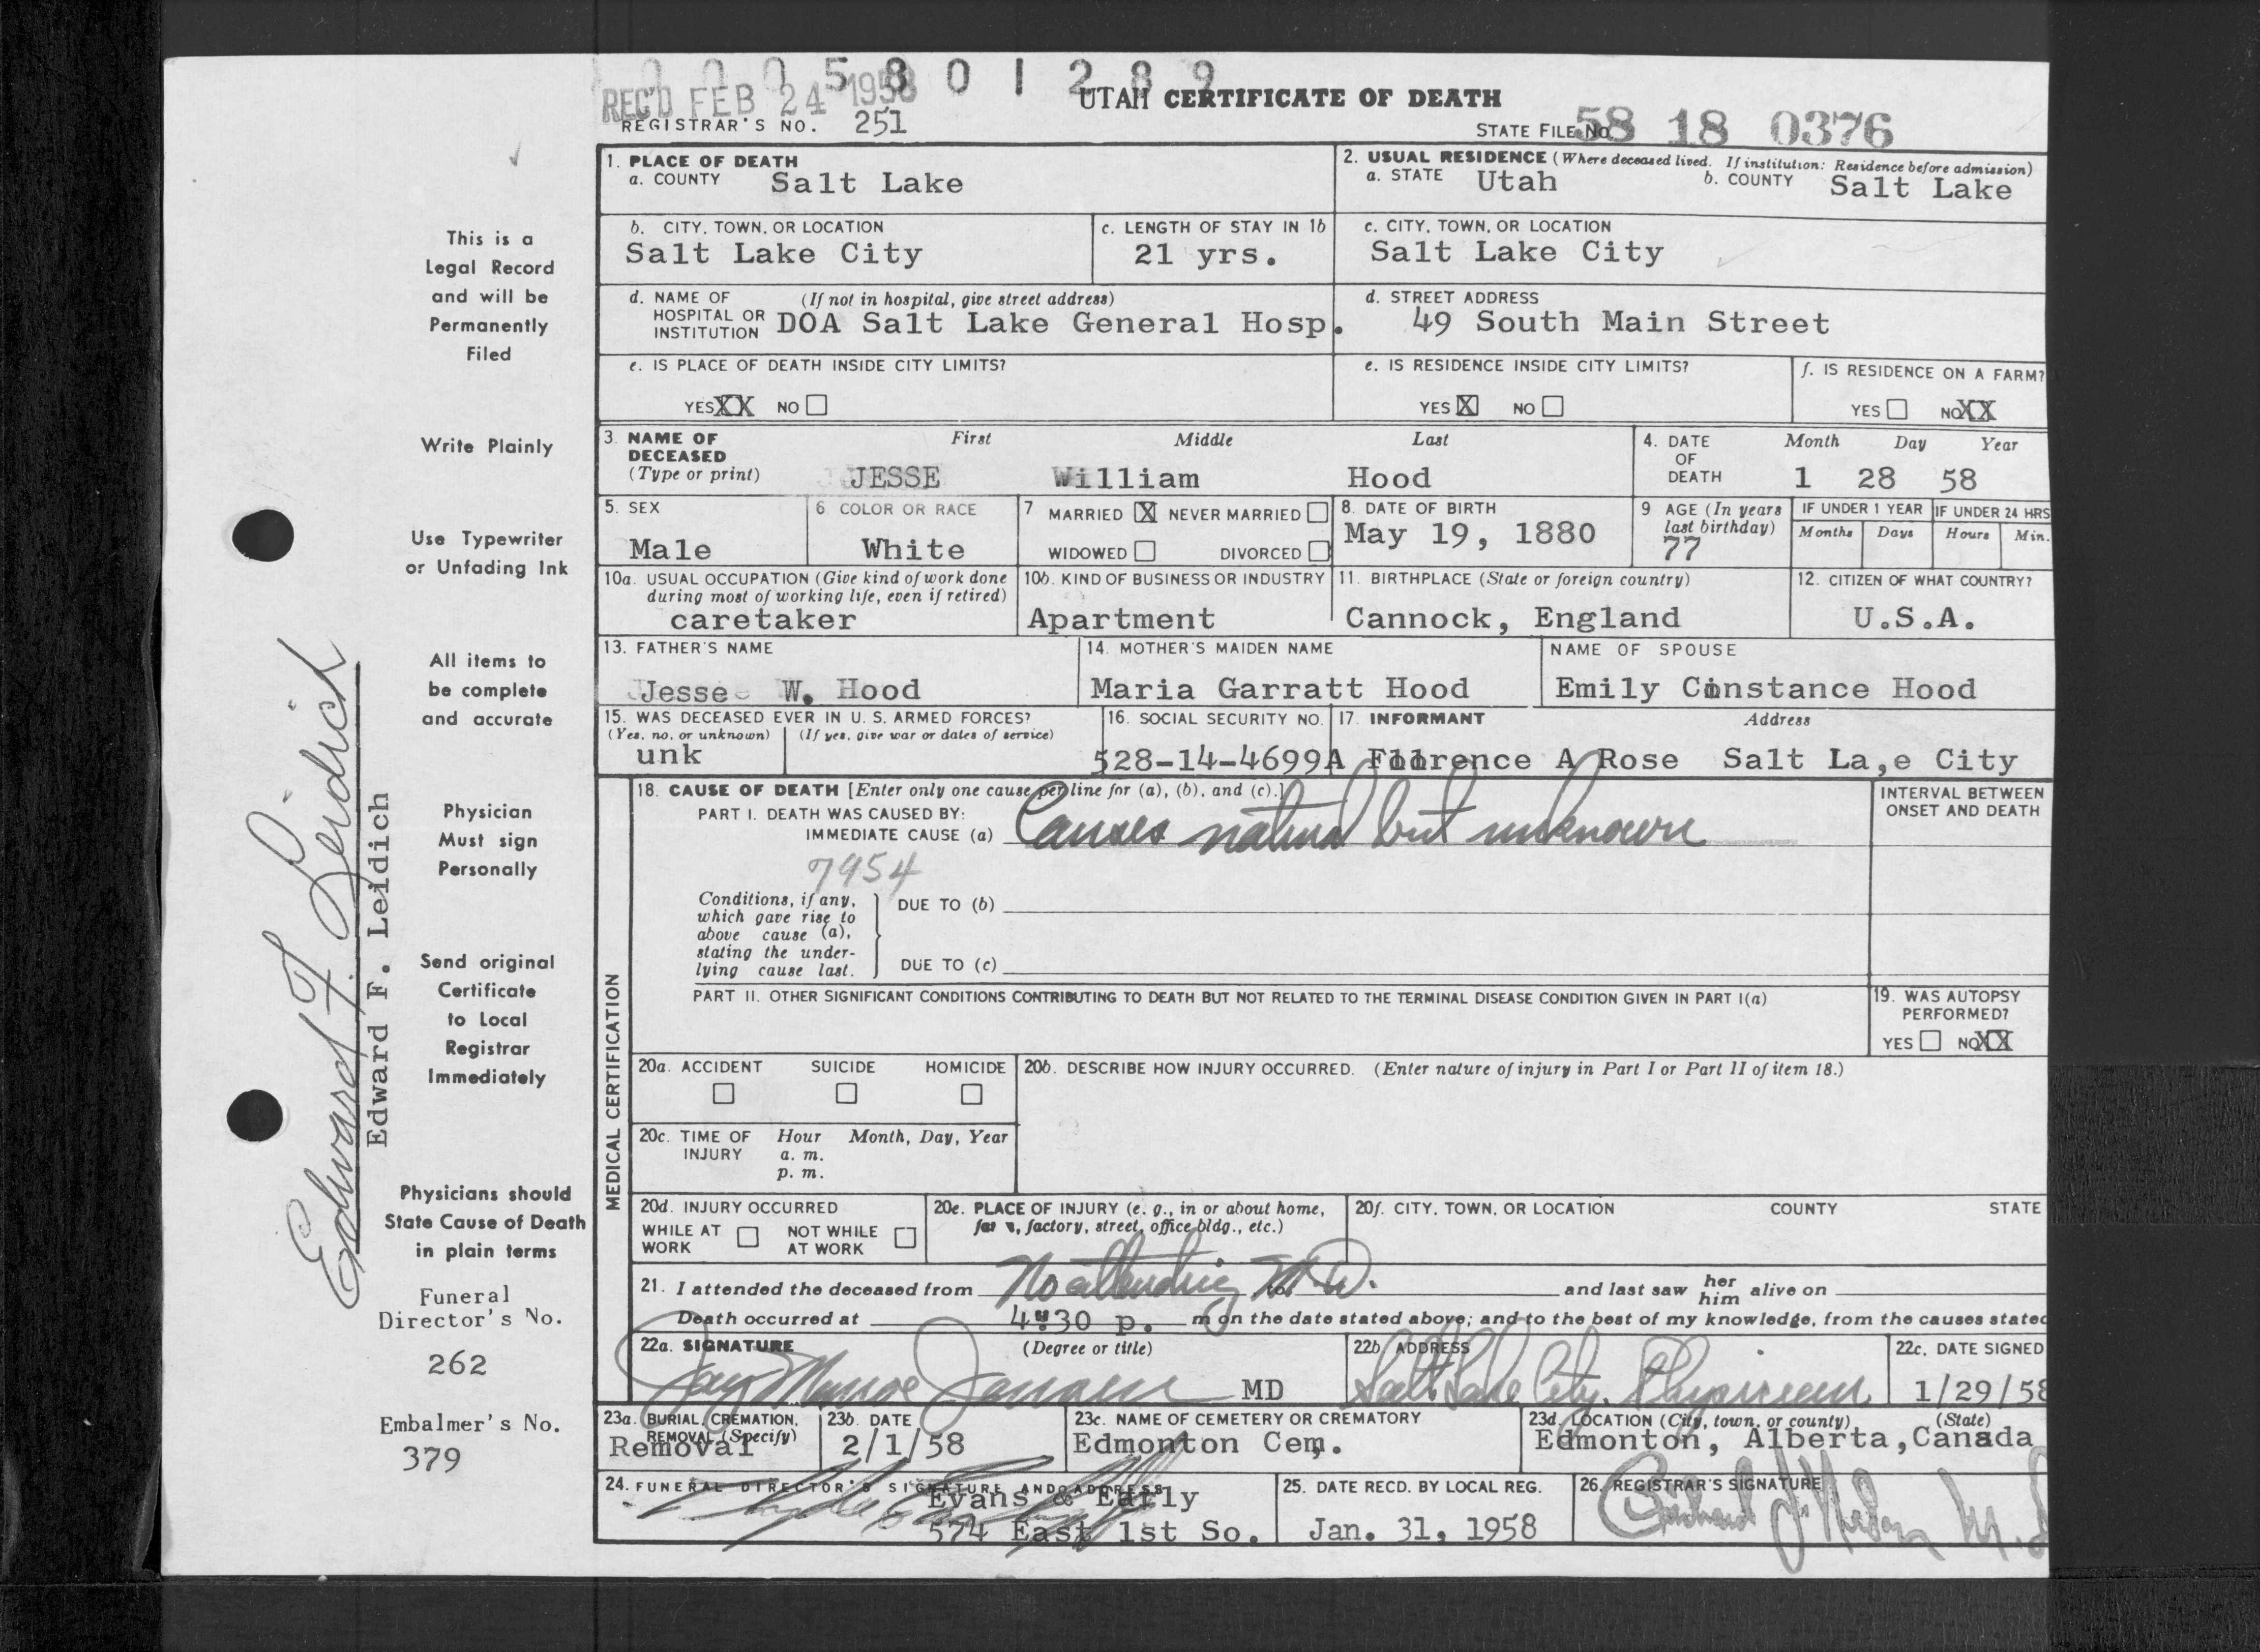 0 0 0 5 8 0 1 2 8 9
REC'D FEB 24 1958
UTAH CERTIFICATE OF DEATH
REGISTRAR'S NO. 251
STATE FILE No. 58 18 0376
1. PLACE OF DEATH
a. COUNTY Salt Lake
2. USUAL RESIDENCE (Where deceased lived. If institution: Residence before admission)
a. STATE Utah b. COUNTY Salt Lake
b. CITY, TOWN, OR LOCATION
Salt Lake City
c. LENGTH OF STAY IN 1b
21 yrs.
c. CITY, TOWN, OR LOCATION
Salt Lake City
d. NAME OF HOSPITAL OR INSTITUTION (If not in hospital, give street address)
DOA Salt Lake General Hosp.
d. STREET ADDRESS
49 South Main Street
e. IS PLACE OF DEATH INSIDE CITY LIMITS?
YES XX NO
e. IS RESIDENCE INSIDE CITY LIMITS?
YES X NO
f. IS RESIDENCE ON A FARM?
YES NO XX
3. NAME OF DECEASED (Type or print)
First Middle Last
JESSE William Hood
4. DATE OF DEATH
Month Day Year
1 28 58
5. SEX
Male
6 COLOR OR RACE
White
7 MARRIED X NEVER MARRIED
WIDOWED DIVORCED
8. DATE OF BIRTH
May 19, 1880
9 AGE (In years last birthday)
77
IF UNDER 1 YEAR IF UNDER 24 HRS
Months Days Hours Min.
10a. USUAL OCCUPATION (Give kind of work done during most of working life, even if retired)
caretaker
10b. KIND OF BUSINESS OR INDUSTRY
Apartment
11. BIRTHPLACE (State or foreign country)
Cannock, England
12. CITIZEN OF WHAT COUNTRY?
U.S.A.
13. FATHER'S NAME
Jesse W. Hood
14. MOTHER'S MAIDEN NAME
Maria Garratt Hood
NAME OF SPOUSE
Emily Cinstance Hood
15. WAS DECEASED EVER IN U. S. ARMED FORCES?
(Yes, no, or unknown) (If yes, give war or dates of service)
unk
16. SOCIAL SECURITY NO.
528-14-4699A
17. INFORMANT Address
Florence A Rose Salt La,e City
18. CAUSE OF DEATH [Enter only one cause per line for (a), (b), and (c).]
PART I. DEATH WAS CAUSED BY:
IMMEDIATE CAUSE (a) Causes natural but unknown
7954
INTERVAL BETWEEN ONSET AND DEATH
Conditions, if any, which gave rise to above cause (a), stating the underlying cause last.
DUE TO (b)
DUE TO (c)
PART II. OTHER SIGNIFICANT CONDITIONS CONTRIBUTING TO DEATH BUT NOT RELATED TO THE TERMINAL DISEASE CONDITION GIVEN IN PART I(a)
19. WAS AUTOPSY PERFORMED?
YES NO XX
MEDICAL CERTIFICATION
20a. ACCIDENT SUICIDE HOMICIDE
20b. DESCRIBE HOW INJURY OCCURRED. (Enter nature of injury in Part I or Part II of item 18.)
20c. TIME OF INJURY Hour Month, Day, Year
a. m.
p. m.
20d. INJURY OCCURRED
WHILE AT WORK NOT WHILE AT WORK
20e. PLACE OF INJURY (e. g., in or about home, farm, factory, street, office bldg., etc.)
20f. CITY, TOWN, OR LOCATION COUNTY STATE
21. I attended the deceased from No attending M.D. and last saw her him alive on
Death occurred at 4:30 p. m on the date stated above; and to the best of my knowledge, from the causes stated
22a. SIGNATURE (Degree or title)
MD
22b ADDRESS
Salt Lake City. Physician
22c. DATE SIGNED
1/29/58
23a. BURIAL, CREMATION, REMOVAL (Specify)
Removal
23b. DATE
2/1/58
23c. NAME OF CEMETERY OR CREMATORY
Edmonton Cem.
23d. LOCATION (City, town, or county) (State)
Edmonton, Alberta, Canada
24. FUNERAL DIRECTOR'S SIGNATURE AND ADDRESS
Evans & Early
574 East 1st So.
25. DATE RECD. BY LOCAL REG.
Jan. 31, 1958
26. REGISTRAR'S SIGNATURE
This is a
Legal Record
and will be
Permanently
Filed
Write Plainly
Use Typewriter
or Unfading Ink
All items to
be complete
and accurate
Physician
Must sign
Personally
Send original
Certificate
to Local
Registrar
Immediately
Physicians should
State Cause of Death
in plain terms
Funeral
Director's No.
262
Embalmer's No.
379
Edward F. Leidich
Edward F. Leidich